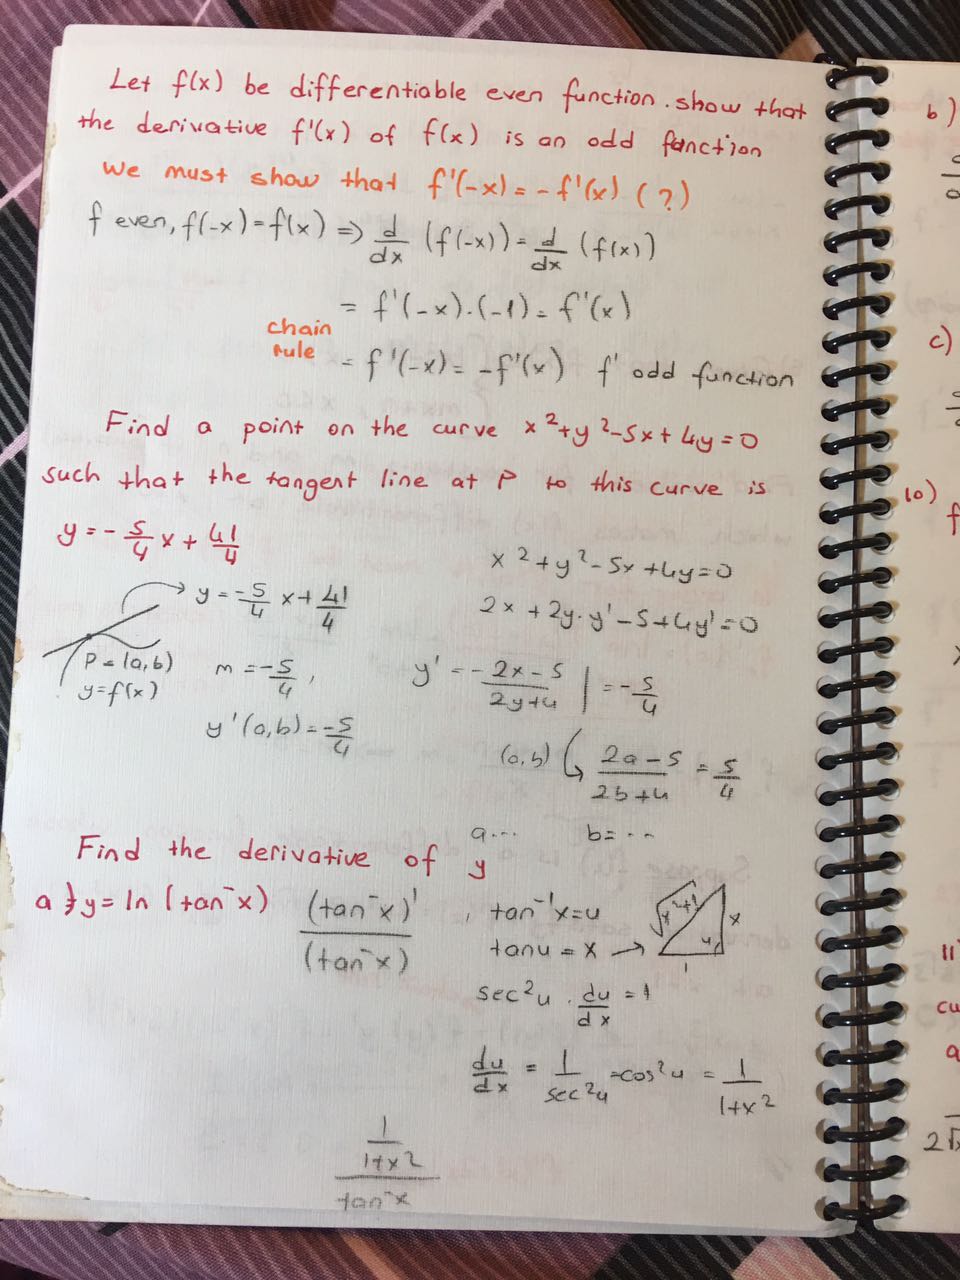 Let f(x) be differentiable even function. show that
the derivative f'(x) of f(x) is an odd function
we must show that f'(-x) = -f'(x) (?)
f even, f(-x) = f(x) => d/dx (f(-x)) = d/dx (f(x))
= f'(-x).(-1) = f'(x)
chain
rule
= f'(-x) = -f'(x) f' odd function
Find a point on the curve x²+y²-5x+4y=0
such that the tangent line at P to this curve is
y = -5/4 x + 41/4
x²+y²-5x+4y=0
y = -5/4 x + 41/4
2x + 2y.y' - 5 + 4y' = 0
P = (a,b)
y = f(x)
m = -5/4 ,
y' = - (2x-5)/(2y+4) | = -5/4
y'(a,b) = -5/4
(a,b) (2a-5)/(2b+4) = 5/4
a... b= ..
Find the derivative of y
a) y = ln (tan⁻x)
(tan⁻x)' / (tan⁻x)
, tan⁻¹x = u
tan u = x →
x²+1
x
u
1
sec²u . du/dx = 1
du/dx = 1/sec²u = cos²u = 1/(1+x²)
(1/(1+x²)) / tan⁻x
b)
c)
10)
f
11)
cu
a
2√